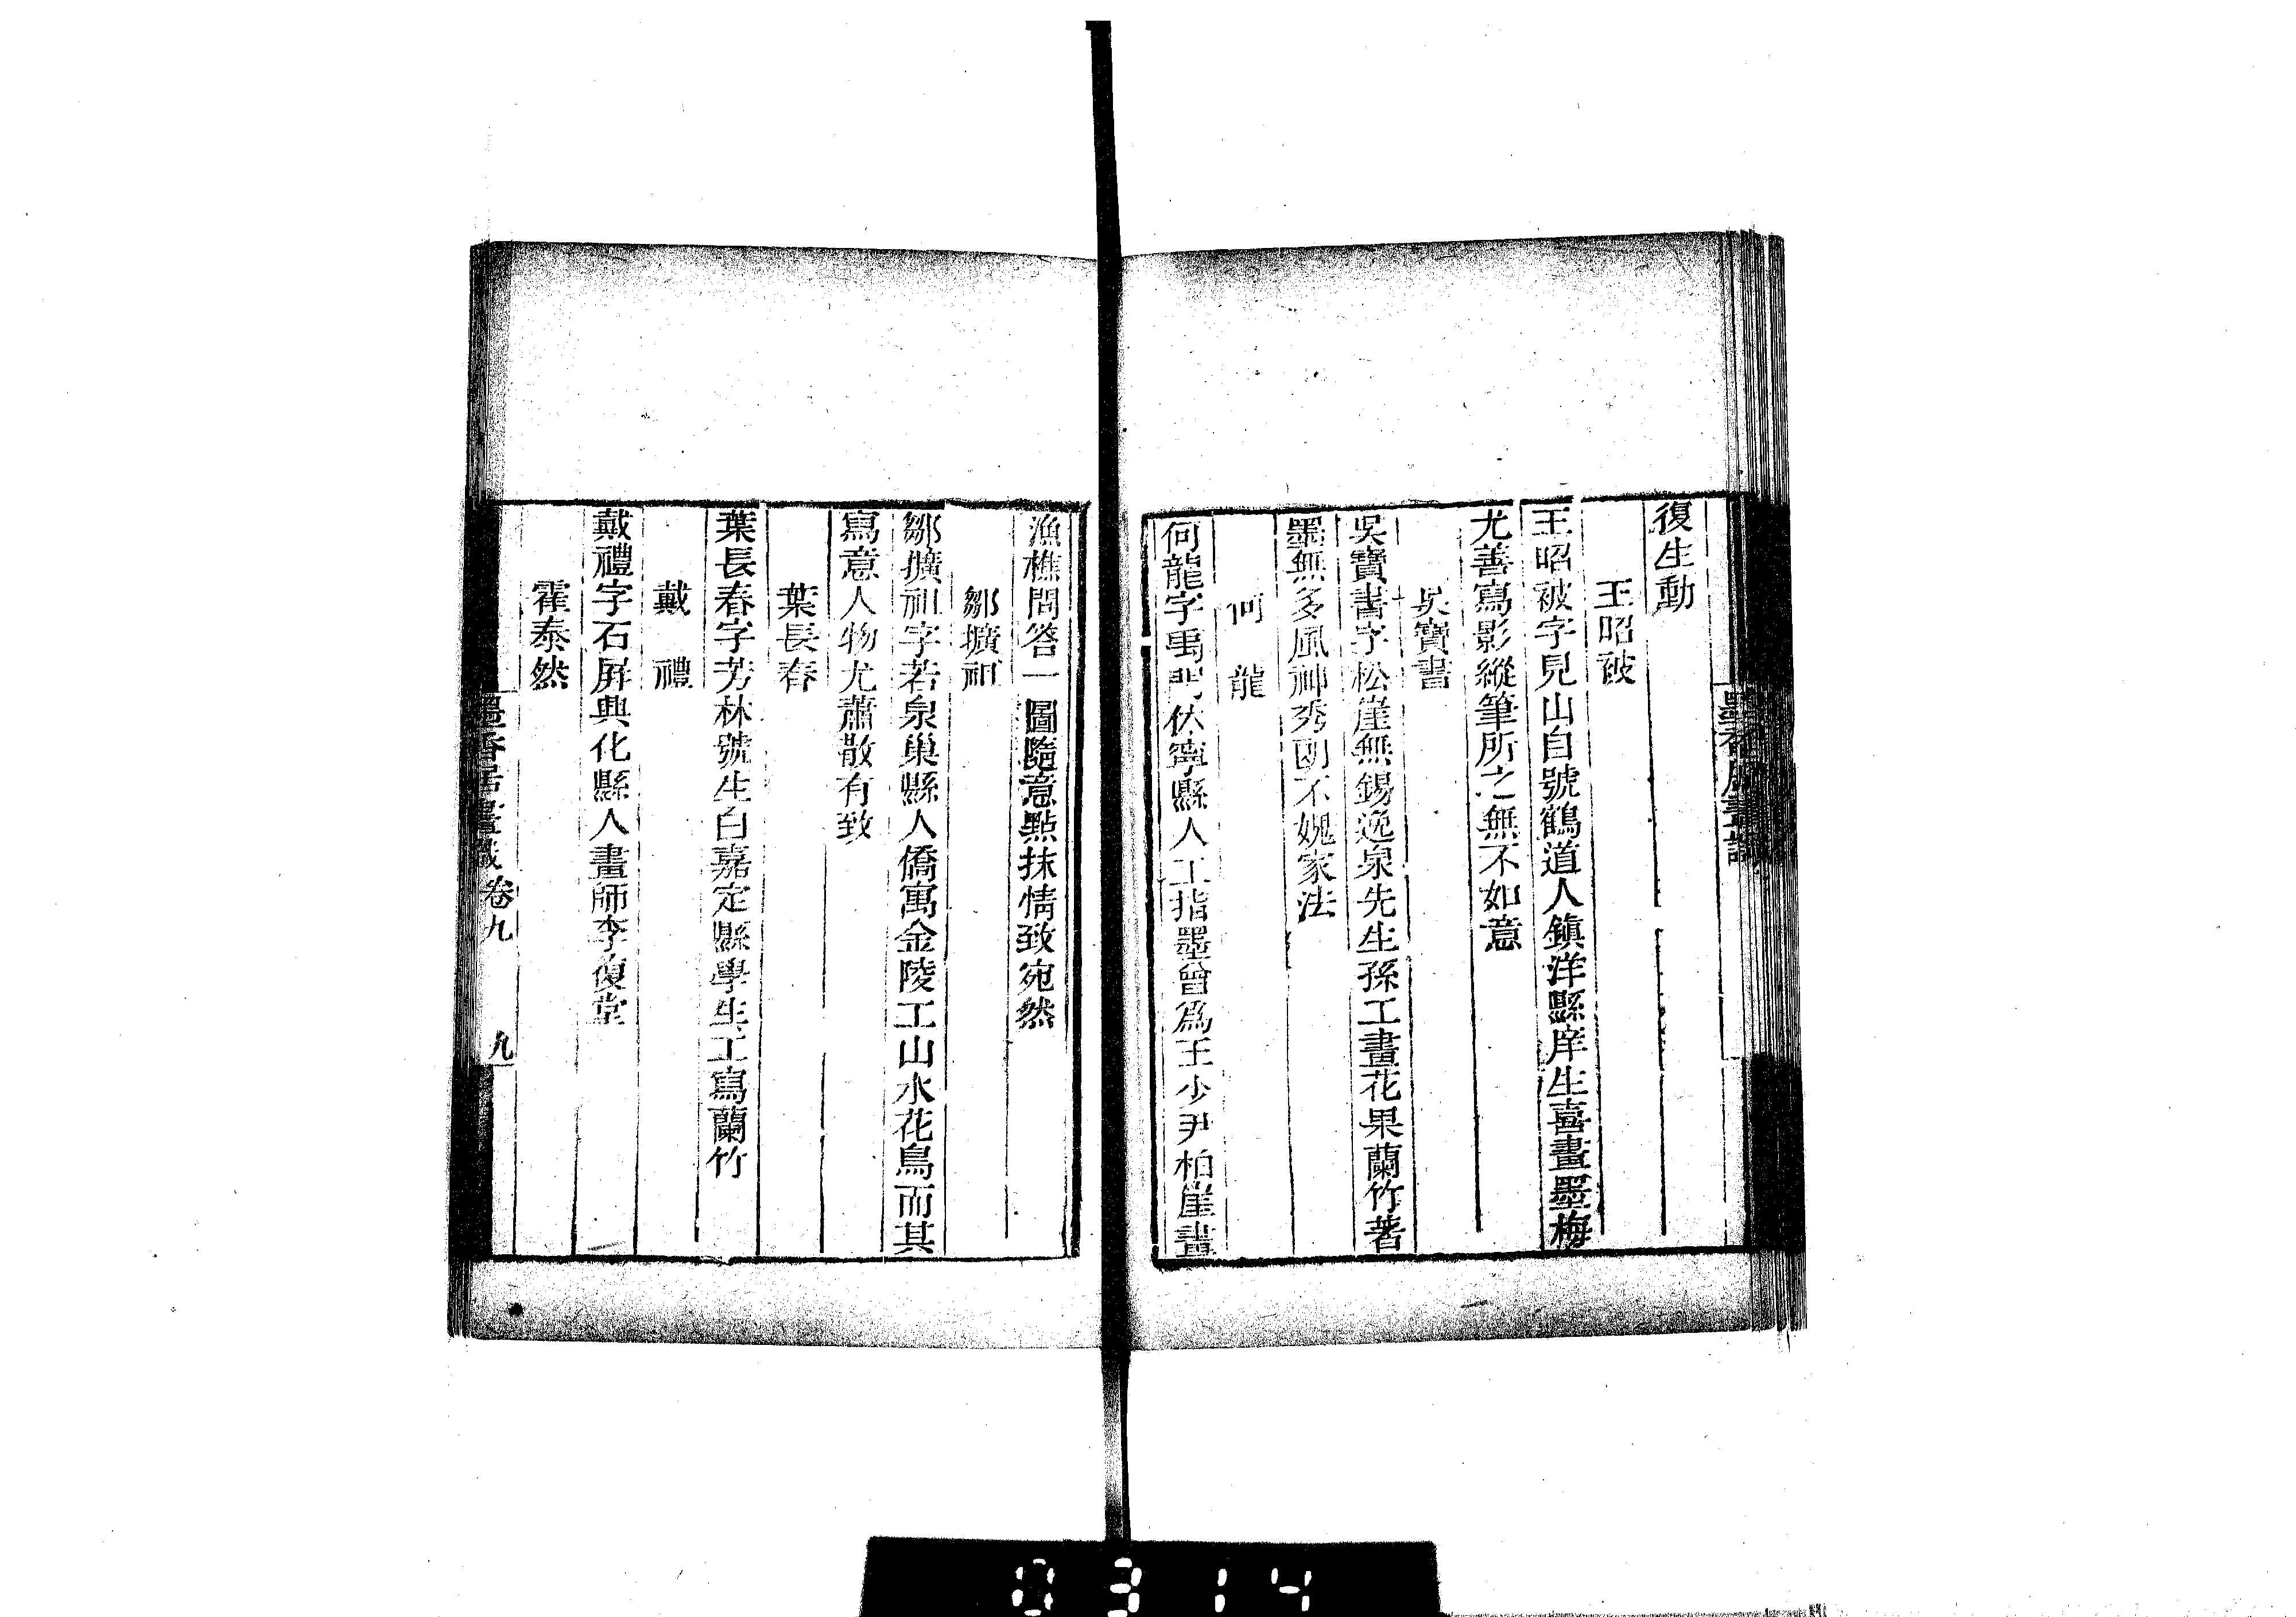 復生動
王昭被
王昭被字見山自號鶴道人鎮洋縣庠生喜畫墨梅
尤善寫影縱筆所之無不如意
吳寶書
吳寶書字松崖無錫逸泉先生孫工畫花果蘭竹著
墨無多風神秀朗不媿家法
何龍
何龍字禹門休寧縣人工指墨曾為王少尹柏崖畫
漁樵問答一圖隨意點抹情致宛然
鄒擴祖
鄒擴祖字若泉巢縣人僑寓金陵工山水花鳥而其
寫意人物尤蕭散有致
葉長春
葉長春字芳林號生白嘉定縣學生工寫蘭竹
戴禮
戴禮字石屏興化縣人畫師李復堂
霍泰然
墨香居畫識 卷九 九
0314